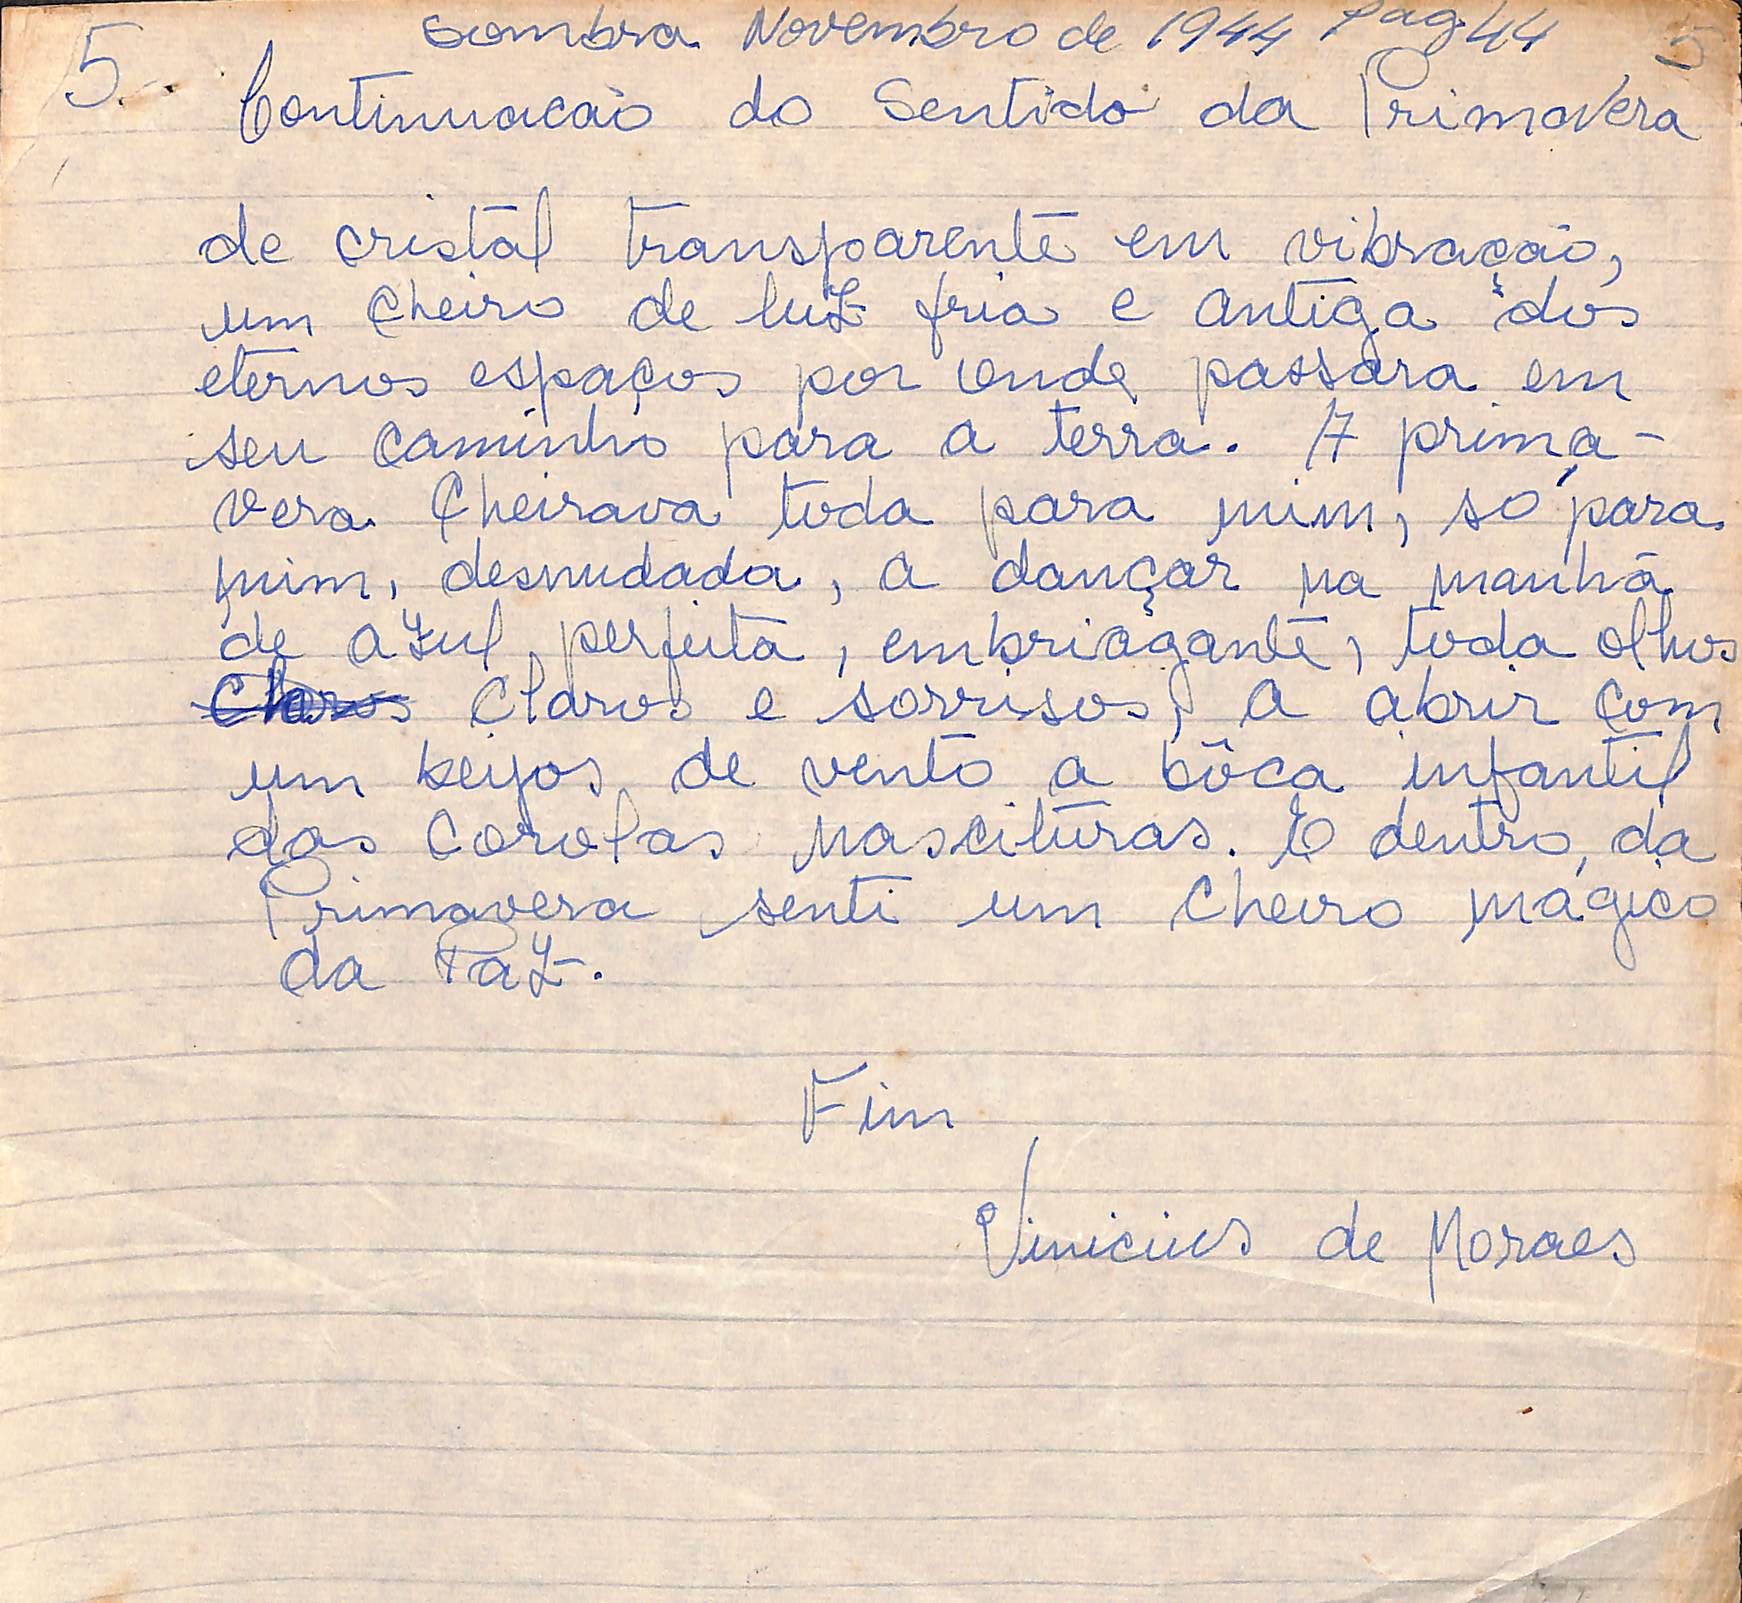 Sombra Novembro de 1944 pag 44
5 5
Continuacão do Sentido da Primavera
de cristal transparente em vibração,
um cheiro de luz fria e antiga dos
eternos espaços por onde passara em
seu caminho para a terra. A prima-
vera cheirava toda para mim, só para
mim, desnudada, a dançar na manhã
de azul perfeita, embriagante, toda olhos
Claros claros e sorrisos, a abrir com
um beijos de vento a bôca infantil
das corolas nascituras. E dentro da
Primavera senti um cheiro mágico
da Paz.
Fim
Vinicius de Moraes